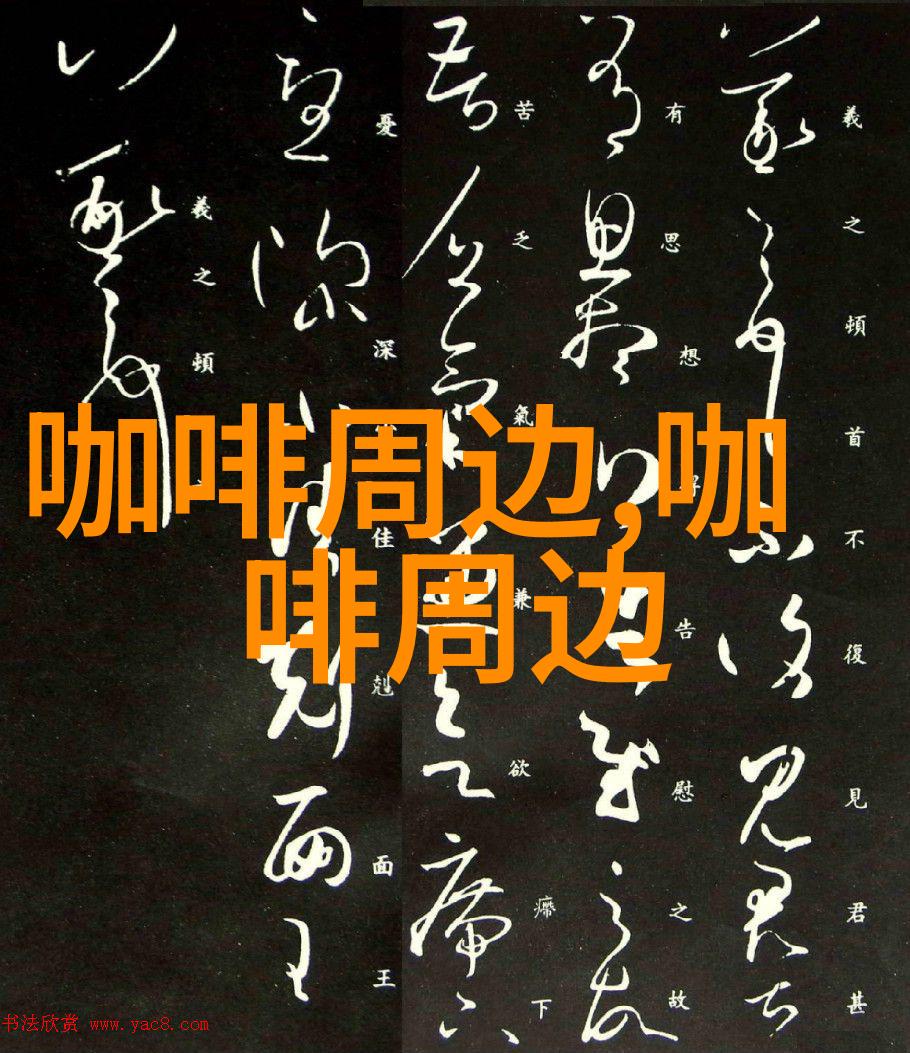 羲之頓首不復見君甚
有思想告慰之故
苦乏氣兼欲㿃下
憂深佳剋面王
羲之頓
咖啡周边,咖
啡周边
书法欣赏 www.yac8.com